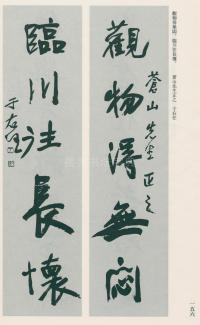 觀物得無悶，臨川注長懷。
蒼山先生正之 于右任
觀物得無悶
蒼山先生正之
臨川注長懷
于右任